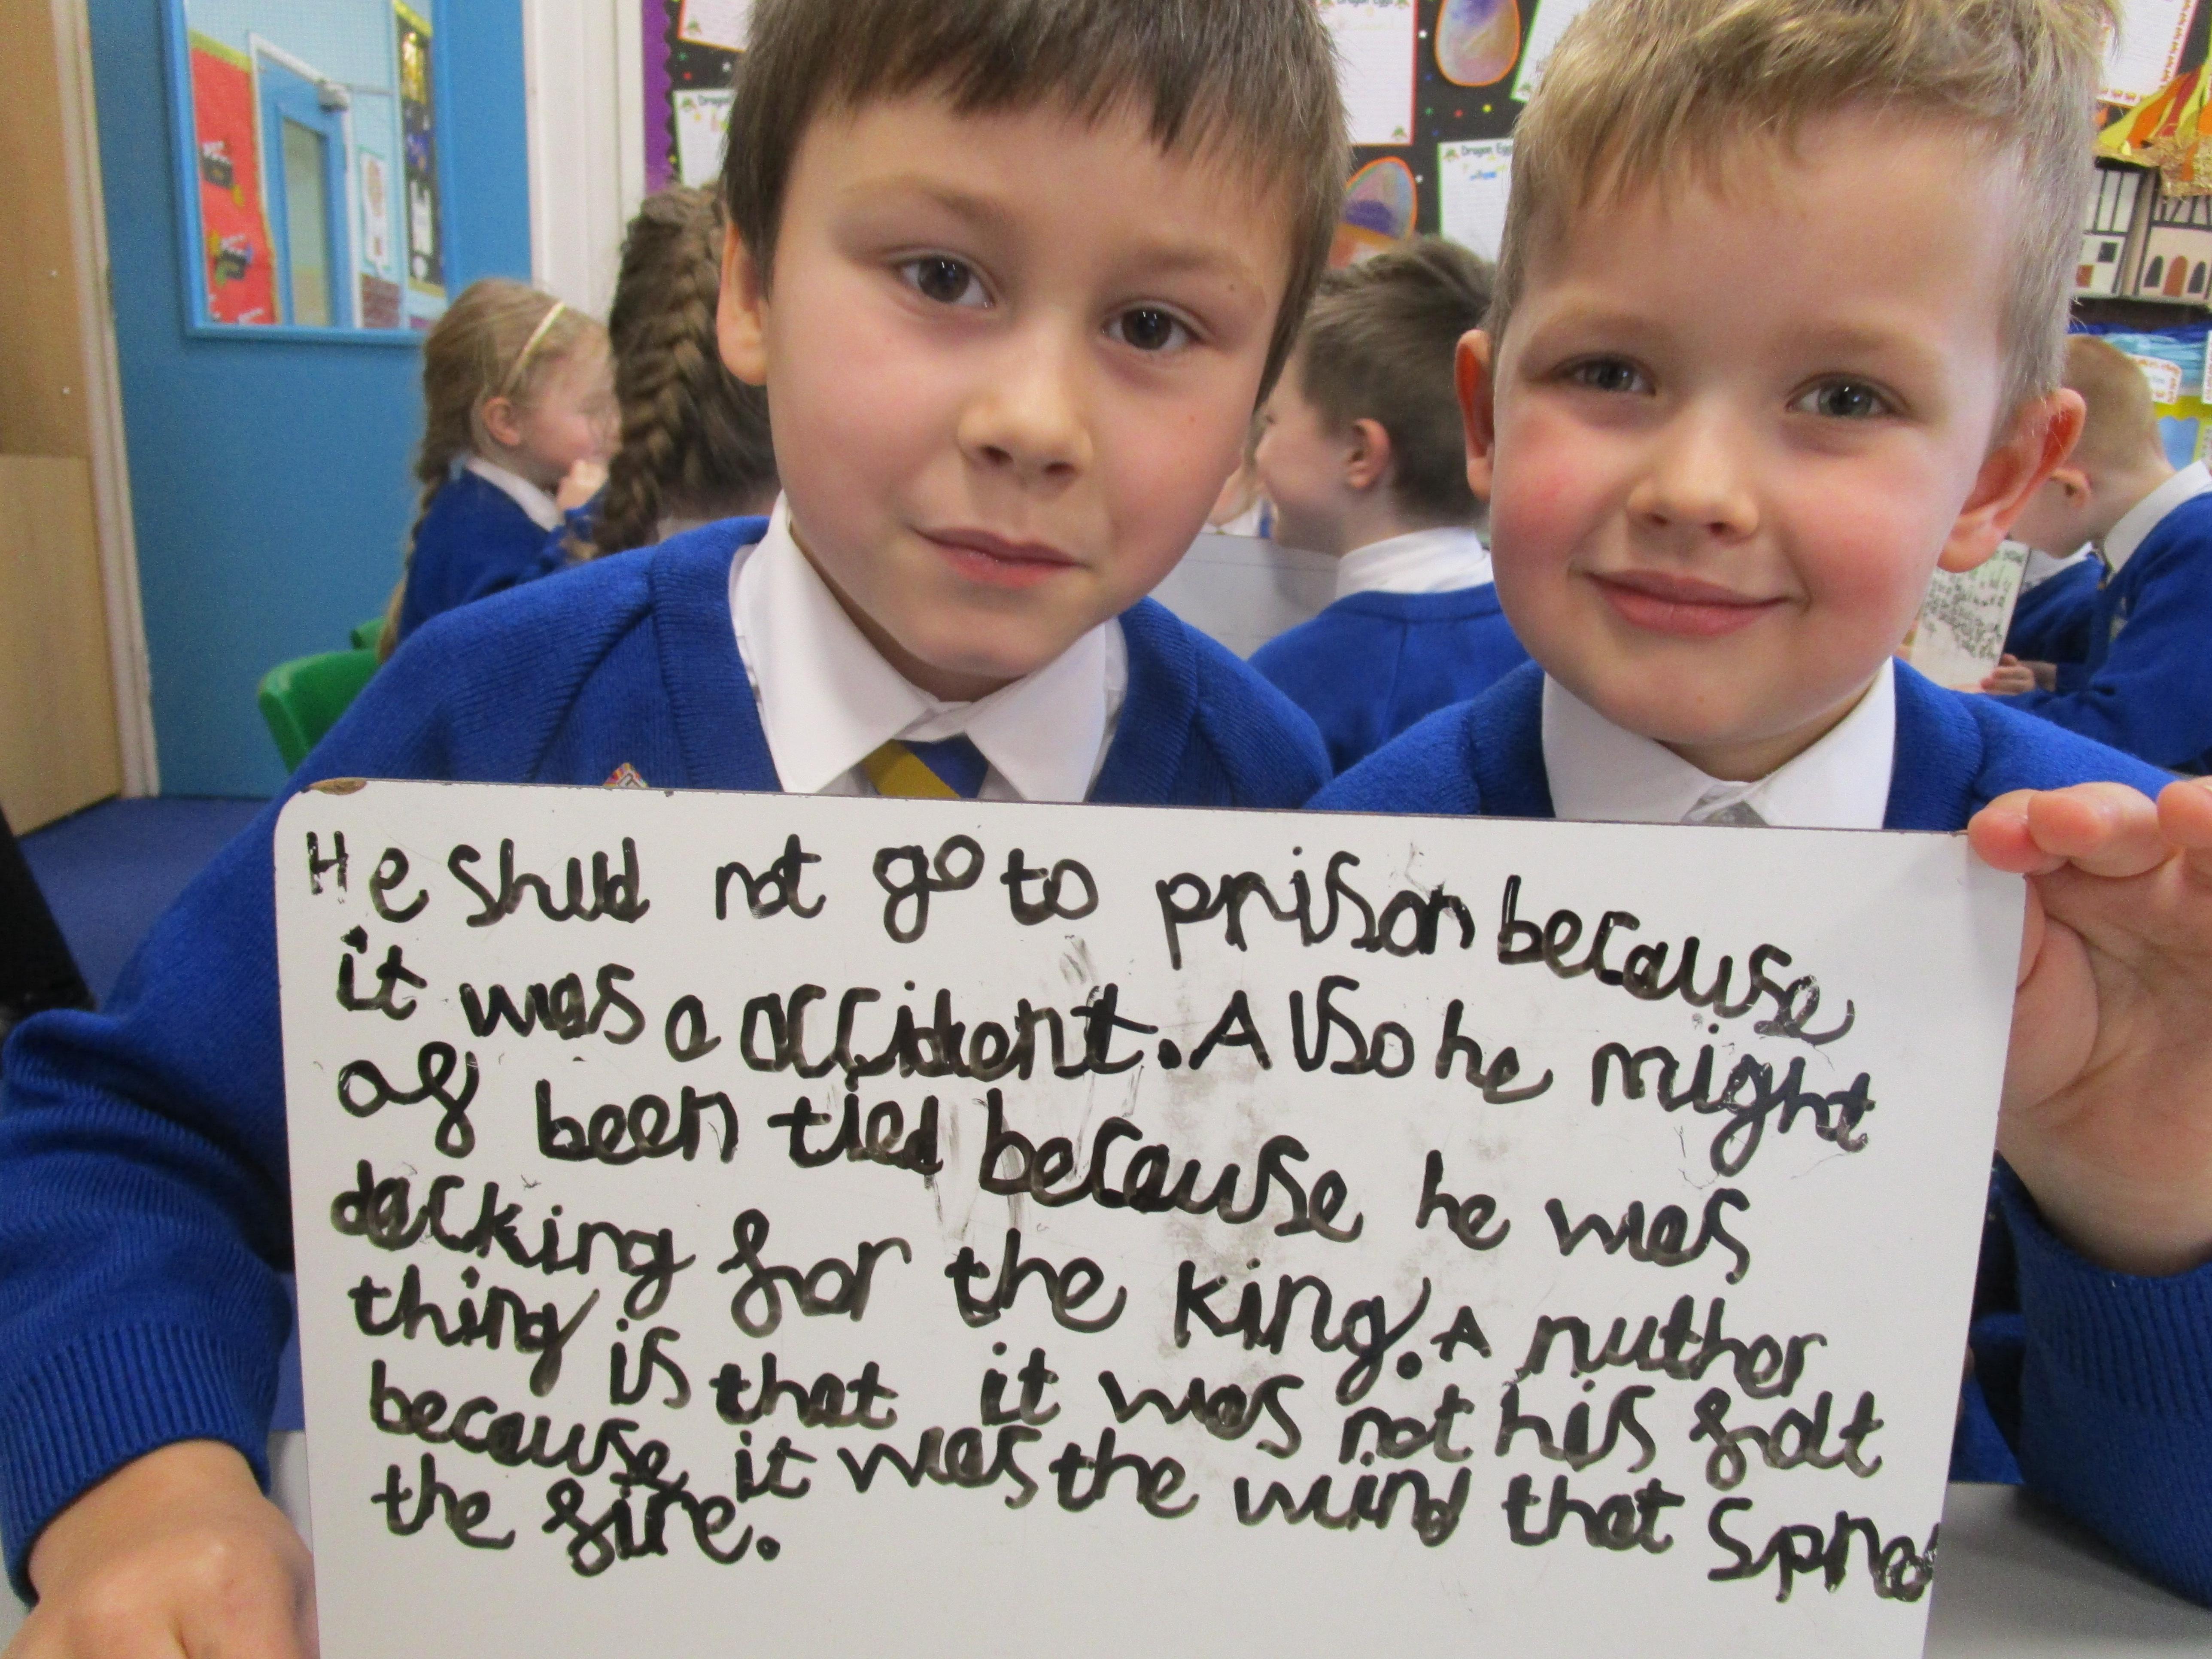 He shud not go to prison because
it was a accident. Also he might
of been tied because he was
dacking for the king. A nuther
thing is that it was not his falt
because it was the wind that Spred
the fire.
Dragon Eggs
Dragon Eggs